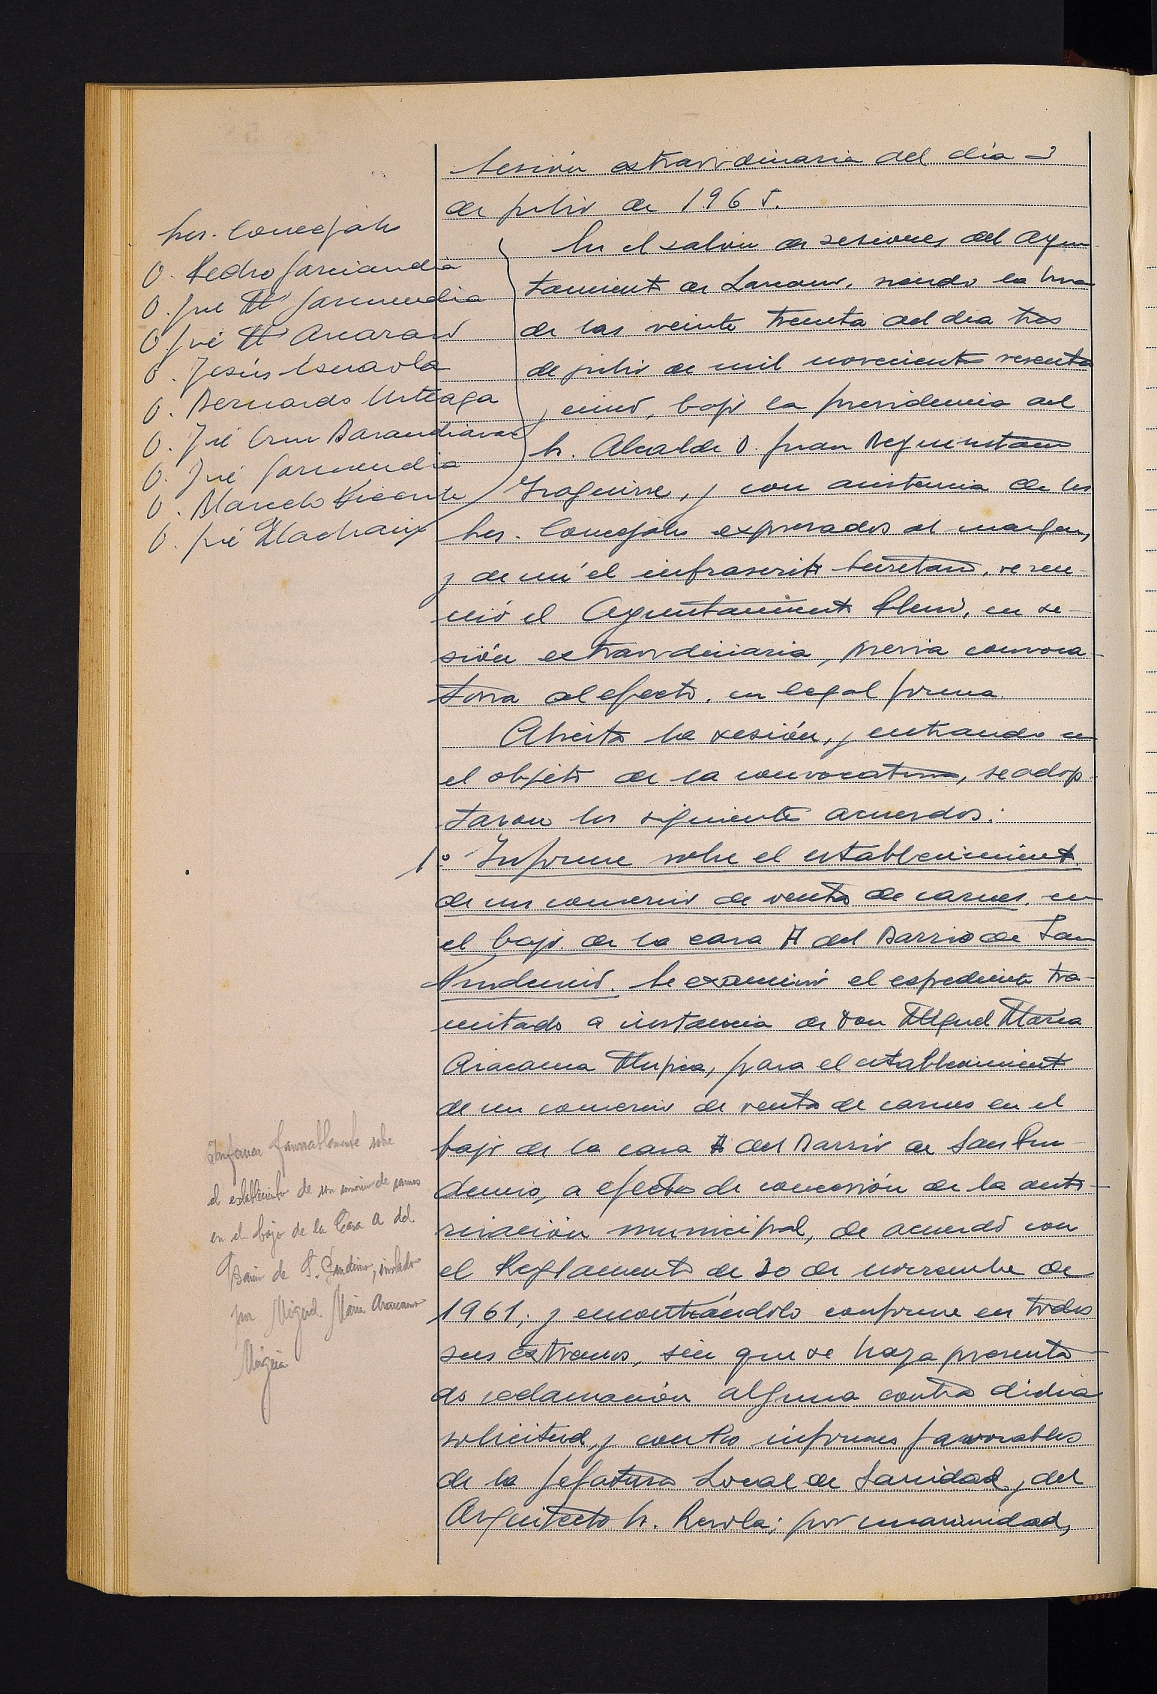 Sesión extraordinaria del día 3
de julio de 1965.
Sres. Concejales
D. Pedro Garciandia
D. José Mª Garmendia
D. José Mª
D. Jesús Esnaola
D. Bernardo Urteaga
D. José Cruz Barandiaran
D. José Garmendia
D. Marcelo Vicente
D. José
En el salón de sesiones del Ayun-
tamiento de Lazcano, siendo la hora
de las veinte treinta del dia tres
de julio de mil novecientos sesenta
y cinco, bajo la presidencia del
Sr. Alcalde D. Juan Beguiristain
Iraguirre, y con asistencia de los
Sres. Concejales expresados al margen,
y de mí el infrascrito Secretario, se reu-
nió el Ayuntamiento Pleno, en se-
sión extraordinaria, previa convoca-
toria al efecto, en legal forma
Abierta la sesión, y entrando en
el objeto de la convocatoria, se adop-
taron los siguientes acuerdos:
1º Informe sobre el establecimiento
de un comercio de venta de carnes, en
el bajo de la casa A del Barrio de San
Prudencio. Se examinó el expediente tra-
mitado a instancia de Don Miguel Maria
Aracama Mugica, para el establecimiento
de un comercio de venta de carnes en el
bajo de la casa A del Barrio de San Pru-
dencio, a efectos de concesión de la auto-
rización municipal, de acuerdo con
el Reglamento de 30 de noviembre de
1961; y encontrándolo conforme en todos
sus extremos, sin que se haya presenta-
do reclamación alguna contra dicha
solicitud, y con los informes favorables
de la Jefatura Local de Sanidad, y del
Arquitecto Sr. Rerola; por unanimidad,
Informar favorablemente sobre
el establecimto de un comercio de carnes
en el bajo de la Casa A del
Barrio de S. Prudencio, instado
por Miguel Maria Aracama
Mugica